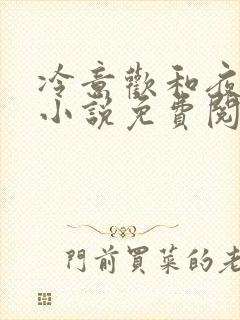 冷意歡和夜
小說免費閱
門前買菜的老